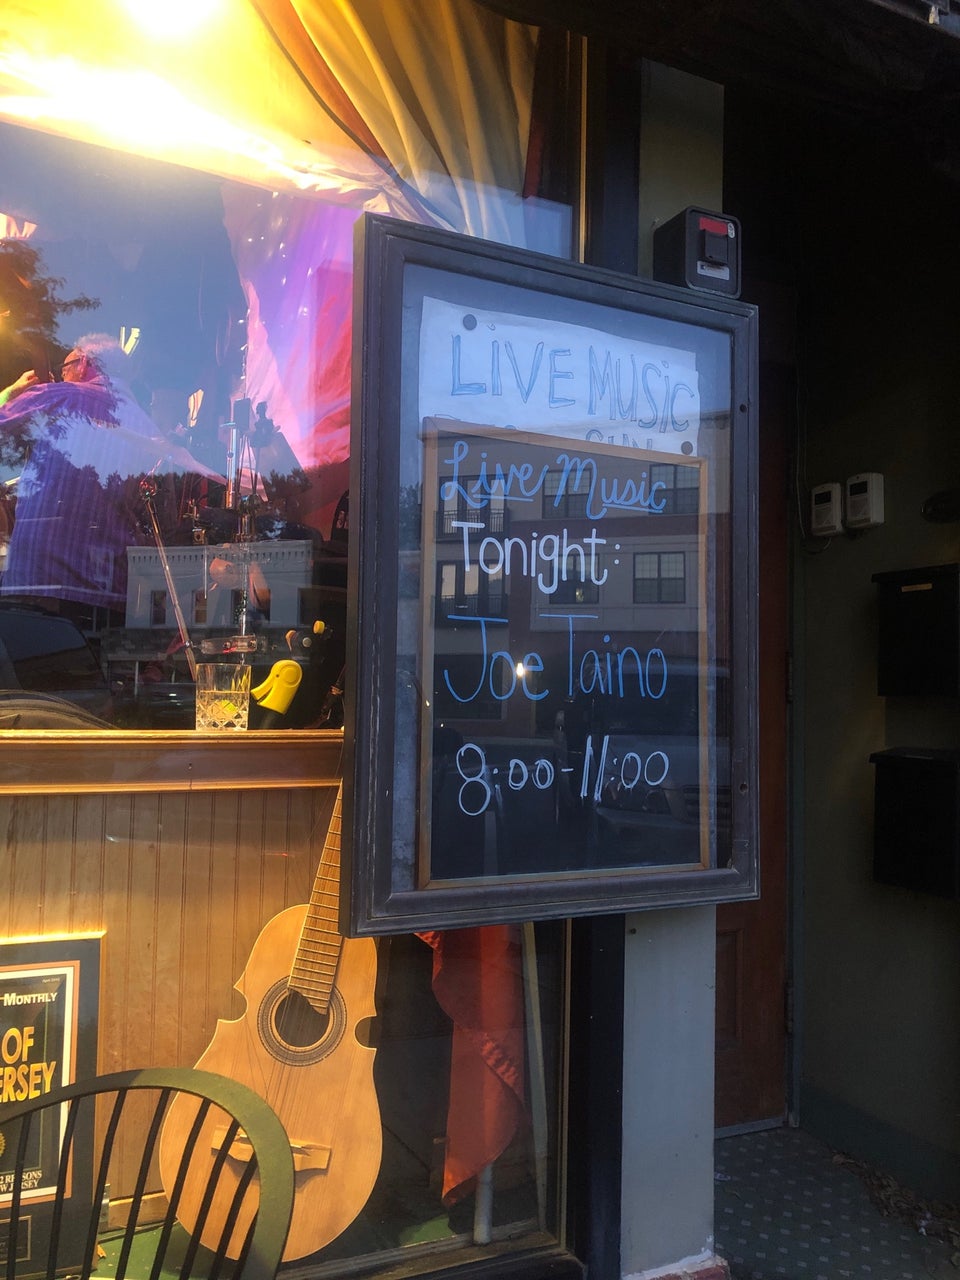 LiVE MUSiC
SUN
Live Music
Tonight:
Joe Taino
8:00-11:00
MONTHLY
OF